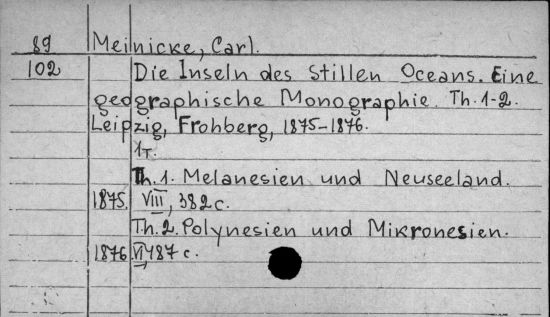 89 Meinicke, Carl.
102 Die Inseln des Stillen Oceans. Eine
geographische Monographie. Th. 1-2.
Leipzig, Frohberg, 1875-1876.
1т.
Th. 1. Melanesien und Neuseeland.
1875. VIII, 382 c.
Th. 2. Polynesien und Mikronesien.
1876 VI, 487 c.